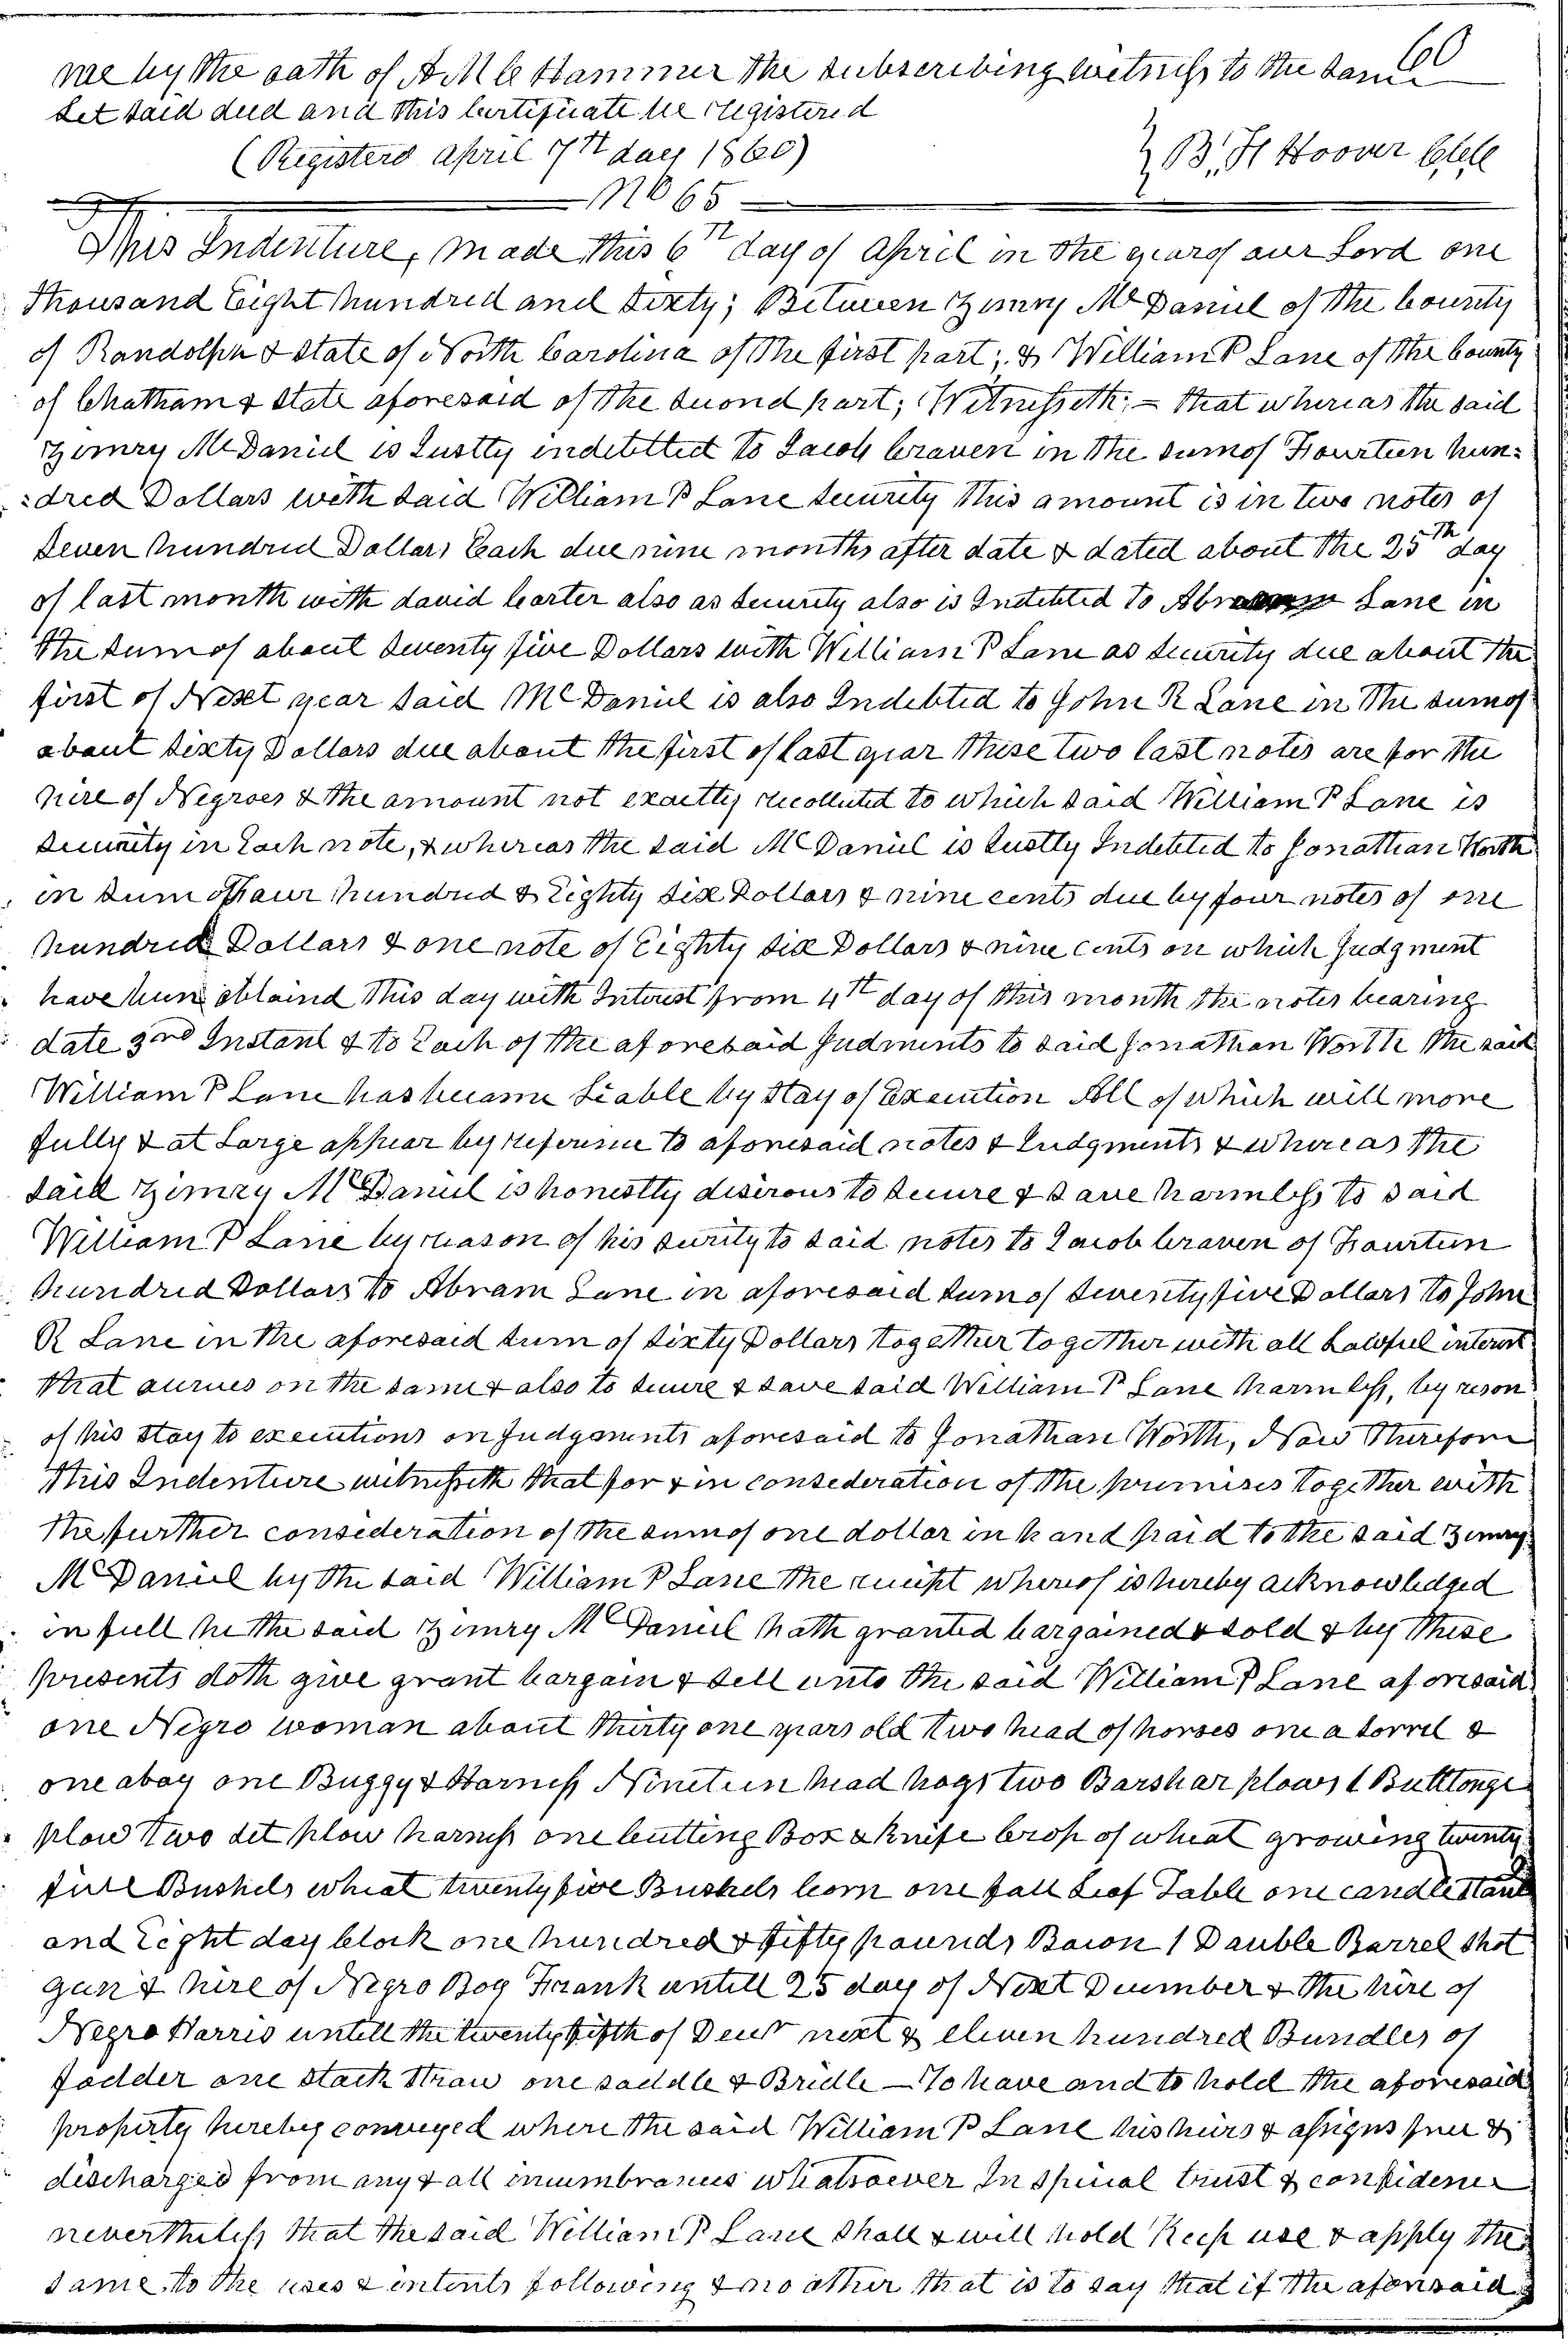 60
me by the oath of A M C Hammer the subscribing witness to the same
Let said deed and this Certificate be registered
(Registerd April 7th day 1860)
B, H Hoover Clk
No 65
This Indenture, made this 6th day of April in the year of our Lord one
Thousand Eight hundred and Sixty; Between Zimry McDaniel of the County
of Randolph & State of North Carolina of the first part; & William P Lane of the County
of Chatham & State aforesaid of the second part; Witnesseth; – that whereas the said
Zimry McDaniel is Justly indebtted to Jacob Craven in the sum of Fourteen hun:
:dred Dollars with said William P Lane security this amount is in two notes of
Seven hundred Dollars Each due nine months after date & dated about the 25th day
of last month with david Carter also as security also is Indebted to Abram Lane in
the sum of about Seventy five Dollars with William P Lane as security due about the
first of Next year said McDaniel is also Indebted to John R Lane in the sum of
about Sixty Dollars due about the first of last year these two last notes are for the
hire of Negroes & the amount not exactly recollected to which said William P Lane is
security in Each note, & whereas the said McDaniel is Justly Indebted to Jonathan Worth
in sum of four hundred & Eighty six Dollars & nine cents due by four notes of one
hundred Dollars & one note of Eighty six Dollars & nine cents on which Judgment
have been obtaind this day with Interest from 4th day of this month the notes bearing
date 3rd Instant & to Each of the aforesaid Judments to said Jonathan Worth the said
William P Lane has became Liable by Stay of Execution All of which will more
fully & at Large appear by referense to aforesaid notes & Judgments & whereas the
said Zimry McDaniel is honestly desirous to secure & save harmless to said
William P Lane by reason of his surity to said notes to Jacob Craven of Fourteen
hundred Dollars to Abram Lane in aforesaid sum of seventy five Dollars to John
R Lane in the aforesaid sum of Sixty Dollars together together with all Lawful interest
that acrues on the same & also to secure & save said William P Lane harmless, by reson
of his stay to executions on Judgments aforesaid to Jonathan Worth, Now Therefore
This Indenture witnesseth that for & in consederation of the premises together with
the further consideration of the sum of one dollar in hand paid to the said Zimry
McDaniel by the said William P Lane the receipt whereof is hereby acknowledged
in full he the said Zimry McDaniel hath granted bargained & sold & by these
presents doth give grant bargain & sell unto the said William P Lane aforesaid
one Negro woman about thirty one years old two head of horses one a sorrel &
one a bay one Buggy & Harness Nineteen head hogs two Barshar plows 1 Bulltonge
plow two set plow harness one Cutting Box & knife Crop of wheat growing twenty
five Bushels wheat twenty five Bushels Corn one fall Leaf Table one candle Stand
and Eight day Clock one hundred & fifty pounds Bacon 1 Dauble Barrel Shot
gun & hire of Negro Boy Frank untill 25 day of Next December & the hire of
Negro Harris untill the twenty fifth of Decr next & eleven hundred Bundles of
fodder one stack straw one saddle & Bridle – To have and to hold the aforesaid
property hereby conveyed where the said William P Lane his heirs & assigns free &
discharged from any & all incumbrances whatsoever In special trust & confidence
nevertheless that the said William P Lane shall & will hold Keep use & apply the
same to the uses & intents following & no other that is to say that if the aforesaid